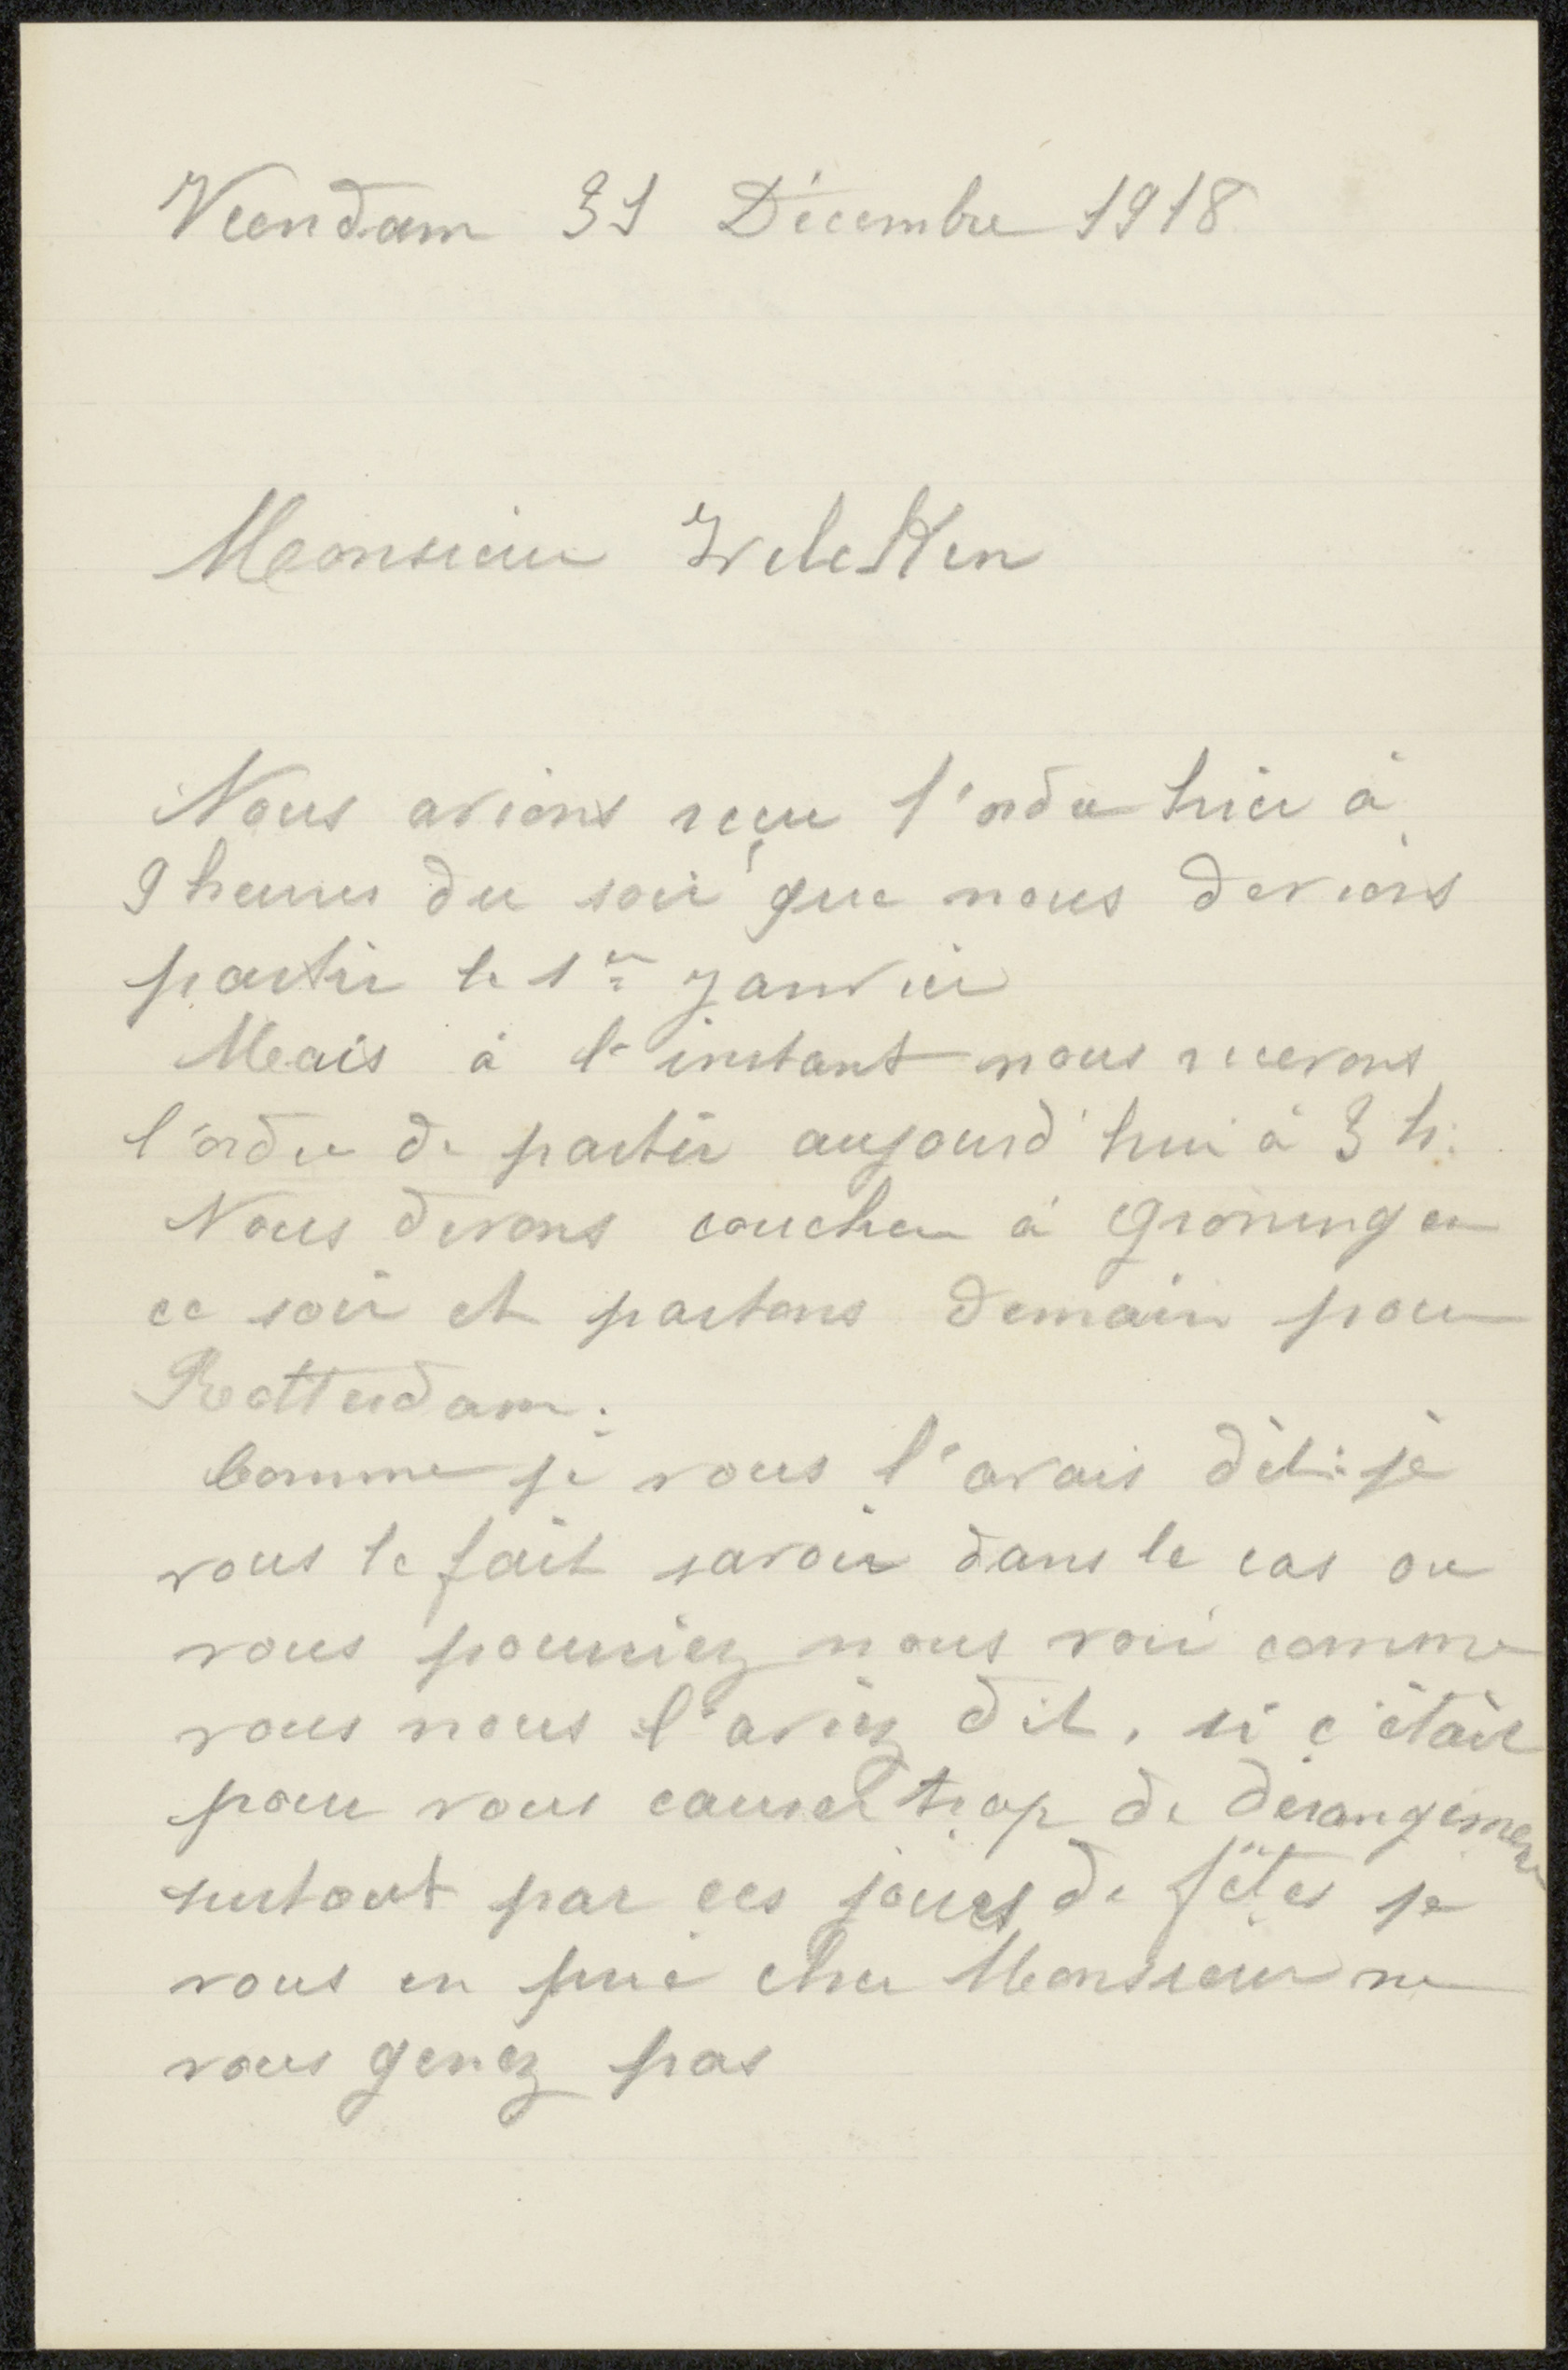 Veendam 31 Décembre 1918
Monsieur
Nous avions reçu l'ordre hier à
9 heures du soir que nous devions
partir le 1er Janvier
Mais à l'instant nous recevons
l'ordre de partir aujourd'hui à 3 h.
Nous devons coucher à Groningen
ce soir et partons demain pour
Rotterdam.
Comme je vous l'avais dit: je
vous le fait savoir dans le cas ou
vous pourriez nous voir comme
vous nous l'aviez dit, si c'était
pour vous causer trop de dérangement
surtout par ces jours de fêtes je
vous en prie cher Monsieur ne
vous genez pas